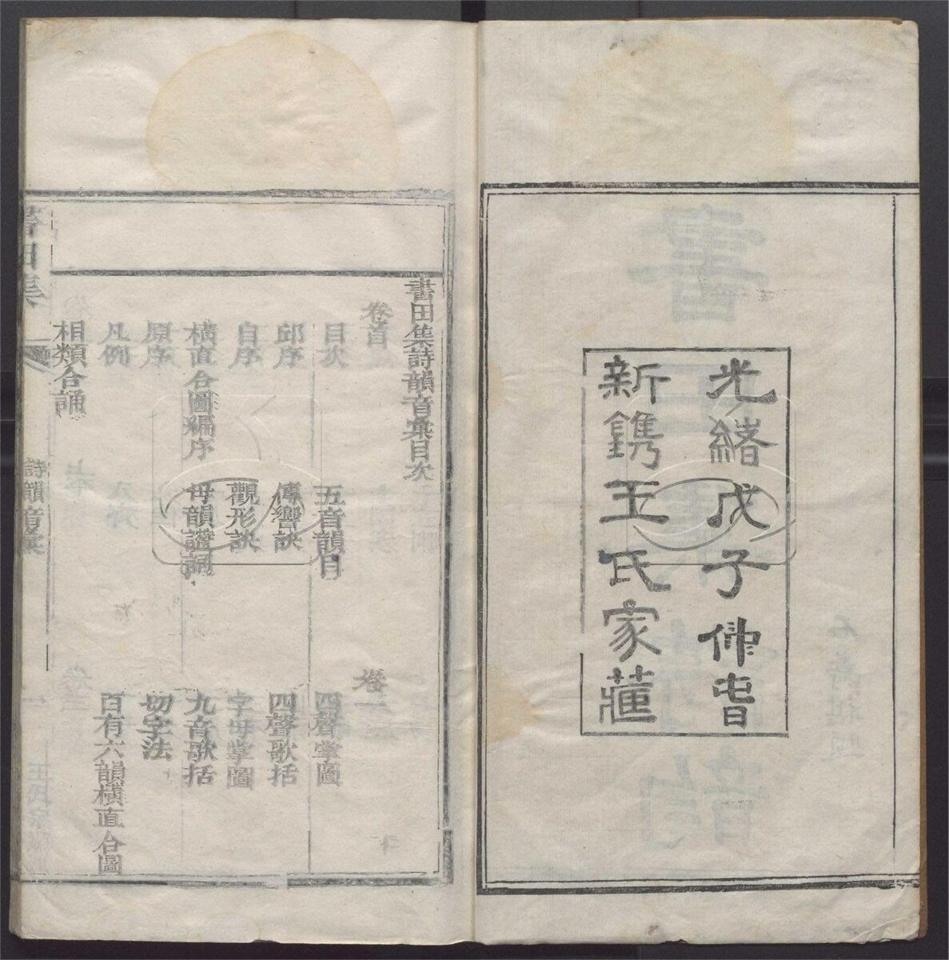 光緒戊子仲旾
新鐫王氏家藏
書田集詩韻音彙目次
卷首 卷一
目次 五音韻目 四聲掌圖
邱序 傳響訣 四聲歌括
自序 觀形訣 字母掌圖
橫直合圖編序 母韻譜詞 九音歌括
原序 切字法
凡例 百有六韻橫直合圖
相類合誦
書田集 詩韻音彙